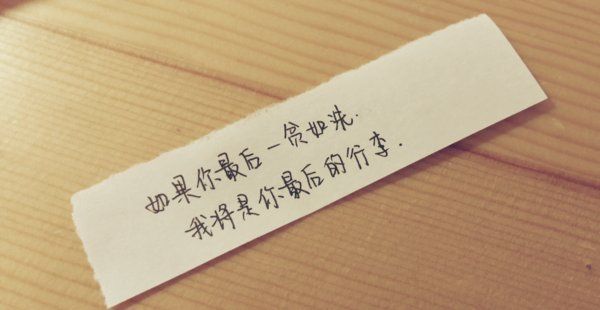 如果你最后一贫如洗.
我将是你最后的行李.